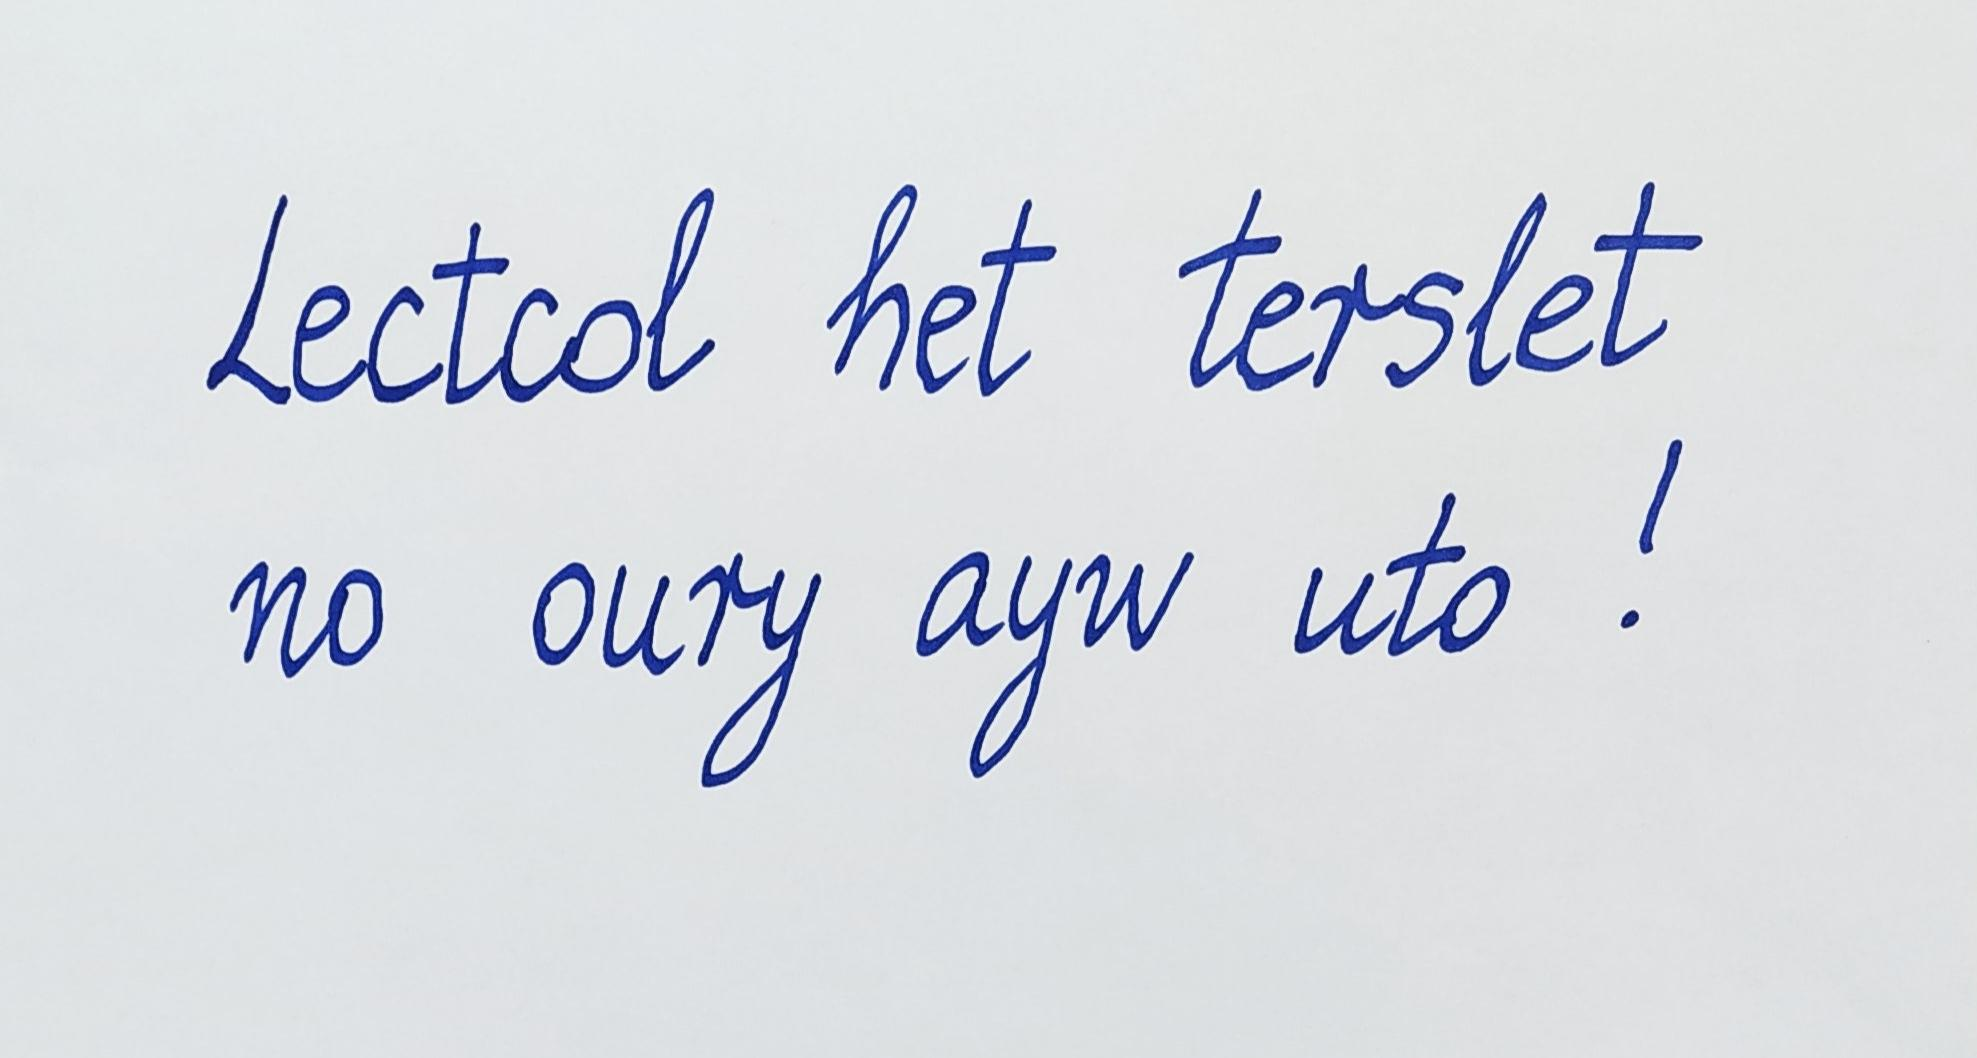 Lectcol het terslet
no oury ayw uto !